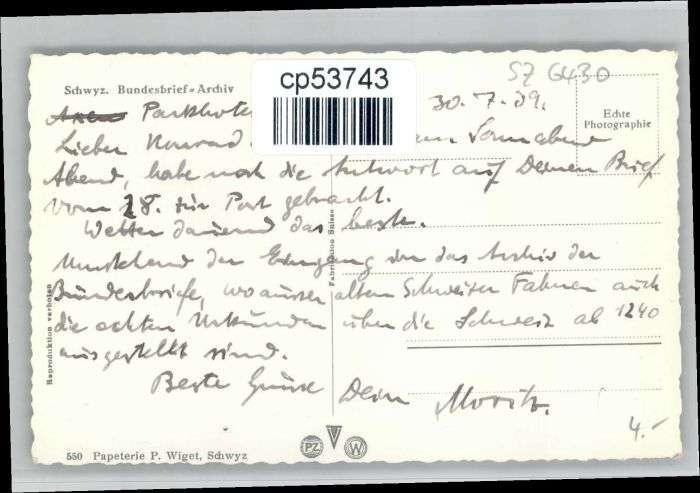 cp53743
SZ 6430
Schwyz. Bundesbrief-Archiv
Echte
Photographie
Parkhote 30.7.39.
Lieber Konrad Sonnabend
Abend, habe noch die Antwort auf Deinen Brief
vom 28. zur Post gebracht.
Wetter dauernd das beste.
Umstehend der Eingang in das Archiv der
Bundesbriefe, wo ausser alten Schweizer Fahnen auch
die echten Urkunden über die Schweiz ab 1240
ausgestellt sind.
Beste Grüsse Dein Moritz.
4.-
Reproduktion verboten
Fabrication Suisse
550 Papeterie P. Wiget, Schwyz
PZ W